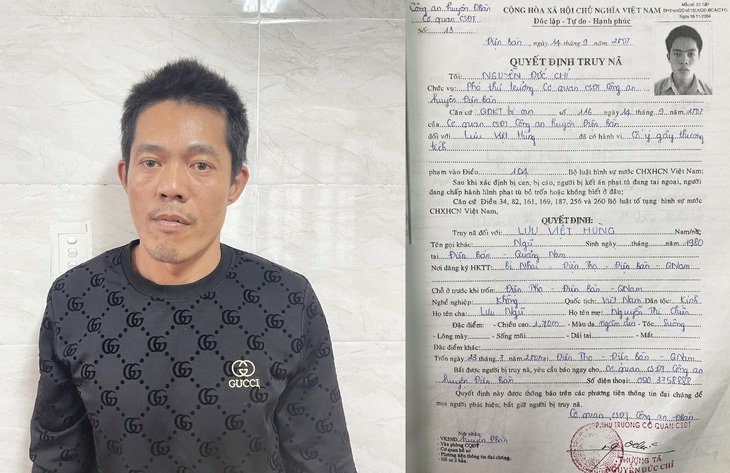 GUCCI
Công an huyện Đbàn
Cơ quan CSĐT
Số: 13
CỘNG HÒA XÃ HỘI CHỦ NGHĨA VIỆT NAM
Độc lập - Tự do - Hạnh phúc
Điện Bàn, ngày 14 tháng 9 năm 2001
QUYẾT ĐỊNH TRUY NÃ
Tôi: NGUYỄN ĐỨC CHỈ
Chức vụ: Phó thủ trưởng Cơ quan CSĐT Công an
huyện Điện Bàn
Căn cứ QĐKT bị can số 116 ngày 14 tháng 9
của Cơ quan CSĐT Công an huyện Điện Bàn
đối với Lưu Việt Hùng đã có hành vi Cố ý gây thương
tích
phạm vào Điều 104 Bộ luật hình sự nước CHXHCN Việt Nam;
Sau khi xác định bị can, bị cáo, người bị kết án phạt tù đang tại ngoại, người
đang chấp hành hình phạt tù bỏ trốn hoặc không biết ở đâu;
Căn cứ Điều 34, 82, 161, 169, 187, 256 và 260 Bộ luật tố tụng hình sự nước
CHXHCN Việt Nam,
QUYẾT ĐỊNH:
Truy nã đối với: LƯU VIỆT HÙNG Nam/nữ
Tên gọi khác: Ngữ Sinh ngày tháng năm 1980
tại Điện Bàn - Quảng Nam
Nơi đăng ký HKTT: Bì Nhai - Điện Thọ - Điện Bàn - QNam
Chỗ ở trước khi trốn: Điện Thọ - Điện Bàn - QNam
Nghề nghiệp: Không Quốc tịch: Việt Nam Dân tộc: Kinh
Họ tên cha: Lưu Ngữ Họ tên mẹ: Nguyễn Thị
Đặc điểm: - Chiều cao: 1,70m - Màu da: ngăm đen - Tóc: Suông
- Lông mày - Sống mũi - Dái tai - Mắt
Đặc điểm khác:
Trốn ngày tháng năm tại Điện Thọ - Điện Bàn - QNam
Bắt được người bị truy nã, yêu cầu báo ngay cho: Cơ quan CSĐT Công an
huyện Điện Bàn Số điện thoại:
Quyết định này được thông báo trên các phương tiện thông tin đại chúng để
mọi người phát hiện, bắt giữ người bị truy nã.
Cơ quan CSĐT Công an Đbàn
P.THỦ TRƯỞNG CƠ QUAN CSĐT
Nơi nhận:
- VKSND huyện Đbàn
- Văn phòng CQĐT
- Cơ quan hồ sơ
- Phương tiện thông tin đại chúng.
- Hồ sơ 2 bản.
THƯỢNG TÁ
NGUYỄN ĐỨC CHỈ